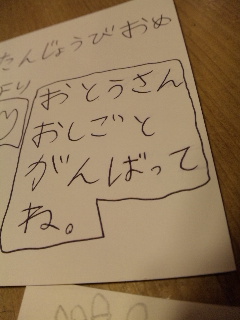 たんじょうびおめ
より
おとうさん
おしごと
がんばって
ね。